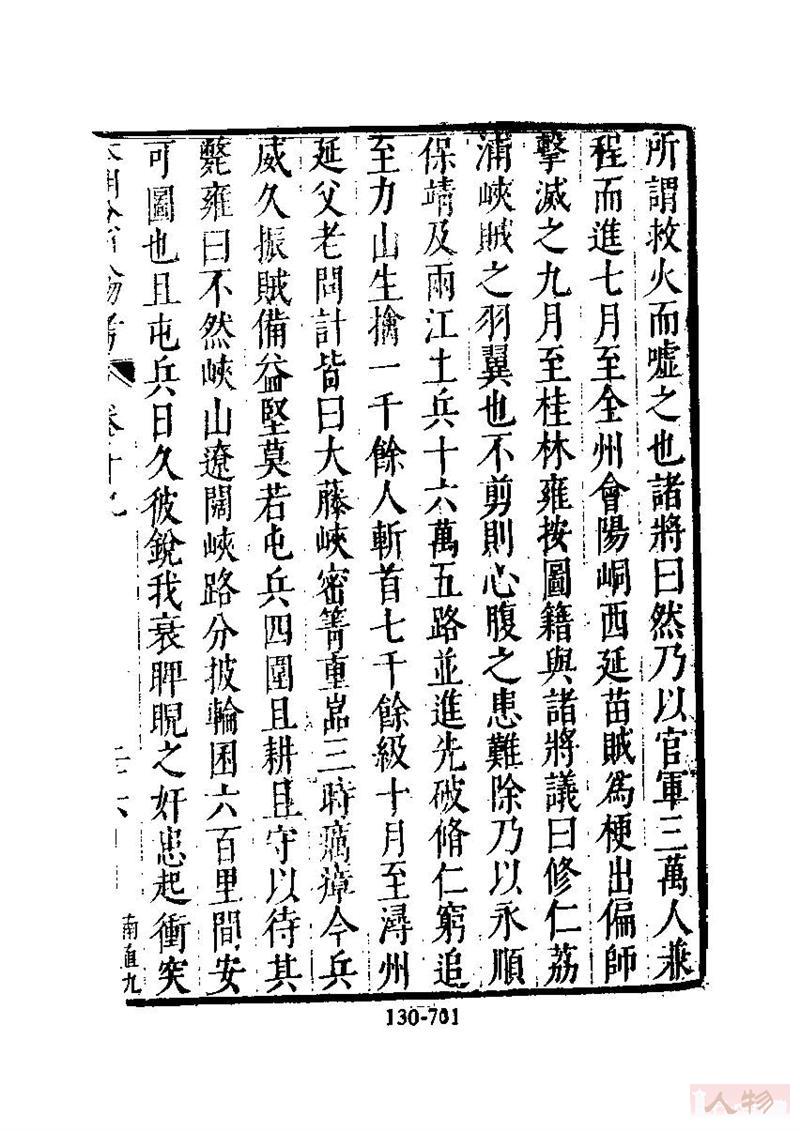 所謂救火而噓之也諸將曰然乃以官軍三萬人兼
程而進七月至全州會陽峒西延苗賊為梗出偏師
擊滅之九月至桂林雍按圖籍與諸將議曰修仁荔
浦峽賊之羽翼也不剪則心腹之患難除乃以永順
保靖及兩江土兵十六萬五路並進先破脩仁窮追
至力山生擒一千餘人斬首七千餘級十月至潯州
延父老問計皆曰大藤峽密箐重嵓三時瘴今兵
威久振賊備益堅莫若屯兵四圍且耕且守以待其
斃雍曰不然峽山遼闊峽路分披輪囷六百里間安
可圖也且屯兵日久彼銳我衰睥睨之奸患起衝突
卷十九
二十六
南直九
130-701
人物